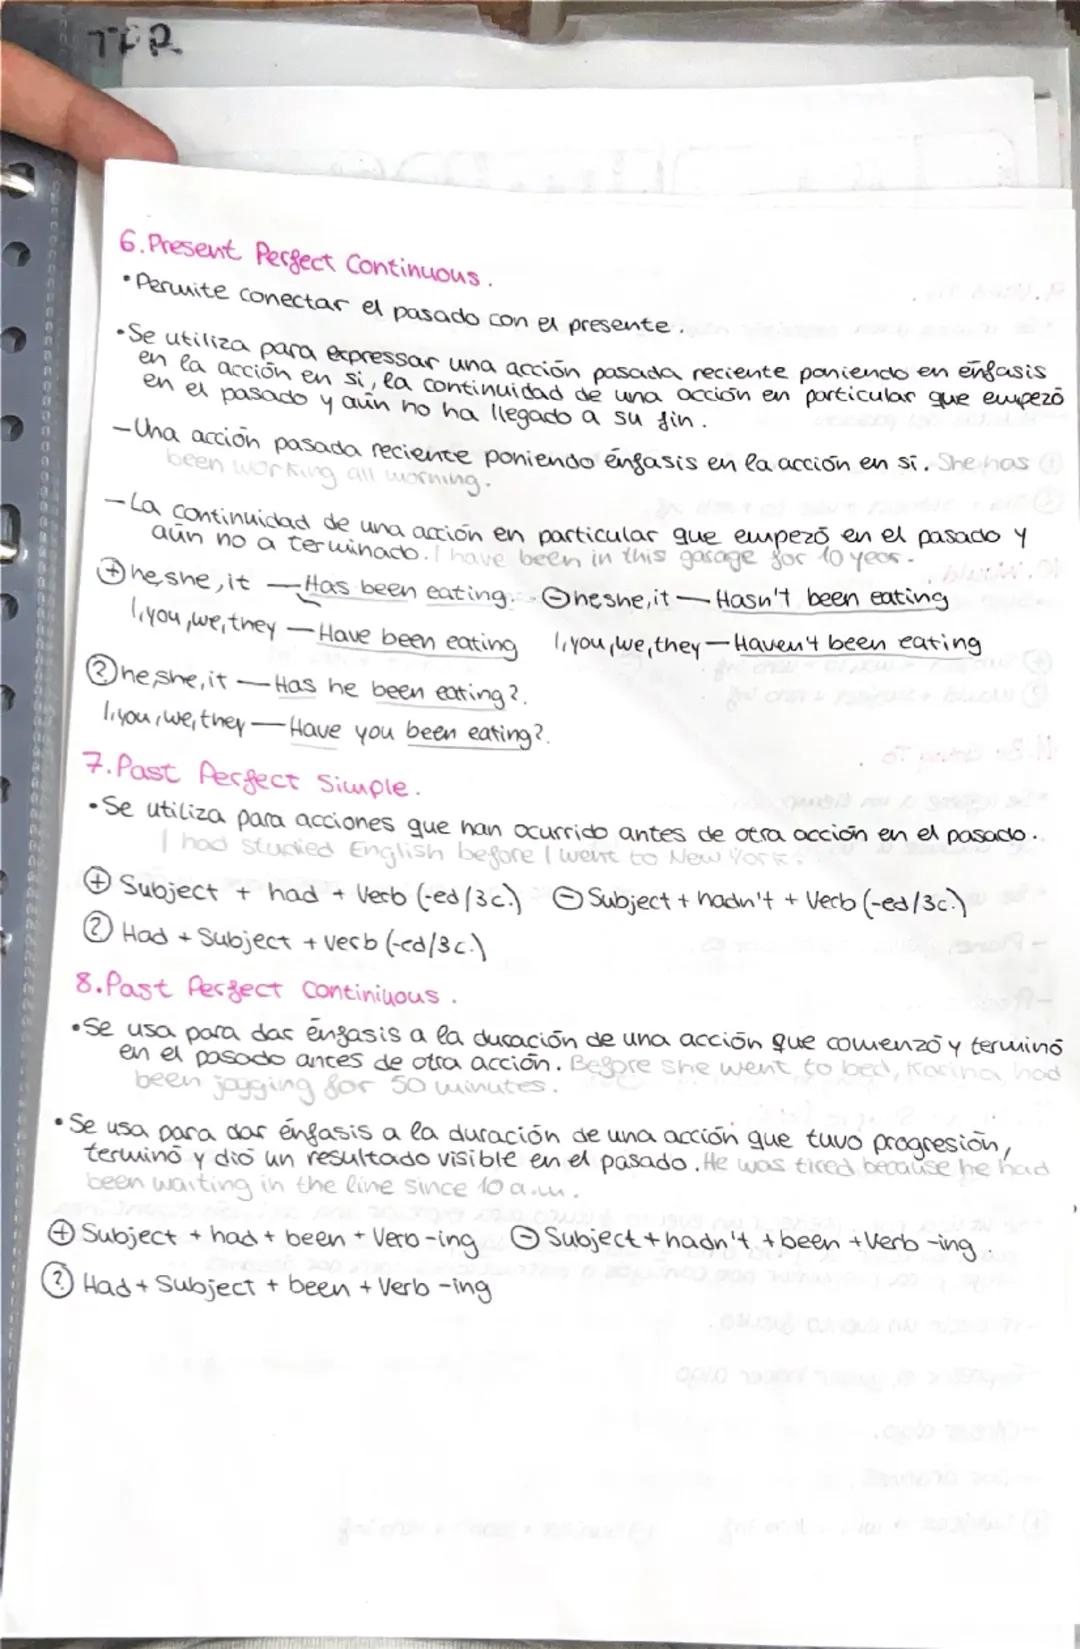 TPR
6.Present Perfect Continuous.
•Permite conectar el pasado con el presente.
•Se utiliza para expressar una acción pasada reciente poniendo en énfasis
en la acción en si, la continuidad de una acción en particular que empezó
en el pasado y aún no ha llegado a su fin.
-Una acción pasada reciente poniendo énfasis en la acción en sí. She has
been working all morning.
-La continuidad de una acción en particular que empezó en el pasado y
aún no a terminado. I have been in this garage for 10 year.
⊕ he,she,it — Has been eating. ⊖ he,she,it — Hasn't been eating
I,you,we,they — Have been eating I,you,we,they — Haven't been eating
? he,she,it — Has he been eating?.
I,you,we,they — Have you been eating?.
7.Past Perfect Simple.
•Se utiliza para acciones que han ocurrido antes de otra acción en el pasado.
I had studied English before I went to New York.
⊕ Subject + had + Verb (-ed/3c.) ⊖ Subject + hadn't + Verb (-ed/3c.)
? Had + Subject + verb (-ed/3c.)
8.Past Perfect Continiuous.
•Se usa para dar énfasis a la duración de una acción que comenzó y terminó
en el pasado antes de otra acción. Before she went to bed, Karina had
been jogging for 50 minutes.
•Se usa para dar énfasis a la duración de una acción que tuvo progresión,
terminó y dió un resultado visible en el pasado. He was tired because he had
been waiting in the line since 10 a.m.
⊕ Subject + had + been + Verb -ing ⊖ Subject + hadn't + been + Verb -ing.
? Had + Subject + been + Verb -ing